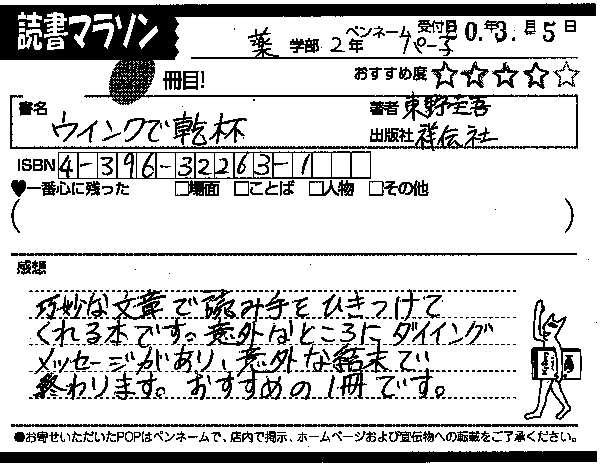 読書マラソン
薬 学部 2年 ペンネーム パー子 受付日 0.年3.月5日
冊目! おすすめ度 ☆☆☆☆☆
書名 ウインクで乾杯 著者 東野圭吾
出版社 祥伝社
ISBN 4-396-32263-1
♥一番心に残った □場面 □ことば □人物 □その他
( )
感想
巧妙な文章で読み手をひきつけて
くれる本です。意外なところにダイイング
メッセージがあり、意外な結末で
終わります。おすすめの1冊です。
●お寄せいただいたPOPはペンネームで、店内で掲示、ホームページおよび宣伝物への転載をご了承ください。